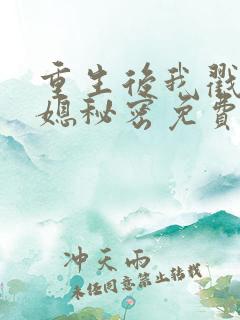 重生后我戳
媳秘密免费
冲天雨
未经同意禁止转载